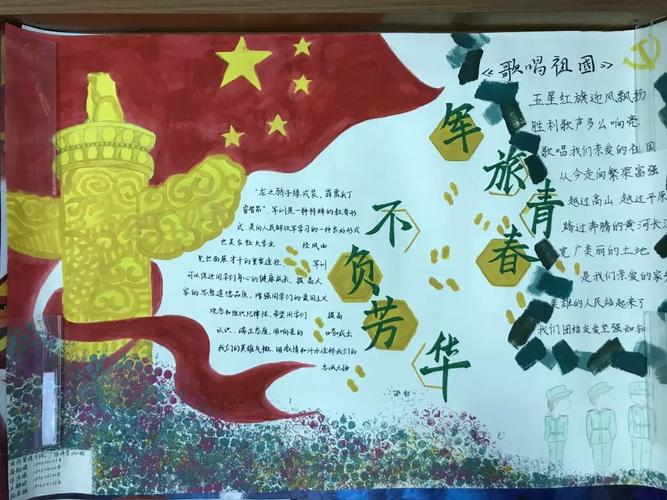 军旅青春
不负芳华
《歌唱祖国》
五星红旗迎风飘扬
胜利歌声多么响亮
歌唱我们亲爱的祖国
从今走向繁荣富强
越过高山 越过平原
跨过奔腾的黄河长江
宽广美丽的土地
是我们亲爱的家
英雄的人民站起来了
我们团结友爱坚强如
",军训是一种特殊的教育形
式,是向人民解放军学习的一种良好形式
也是在校大学生 经风雨
见世面展才干的重要途径, 军训
可以促进同学们身心的健康成长,提高大
家的思想道德品质,增强同学们的爱国主义
观念和组织纪律性,希望同学们 提高
认识,端正态度,用响亮的 口号喊出
我们的英雄气概,用激情和汗水诠释我们的